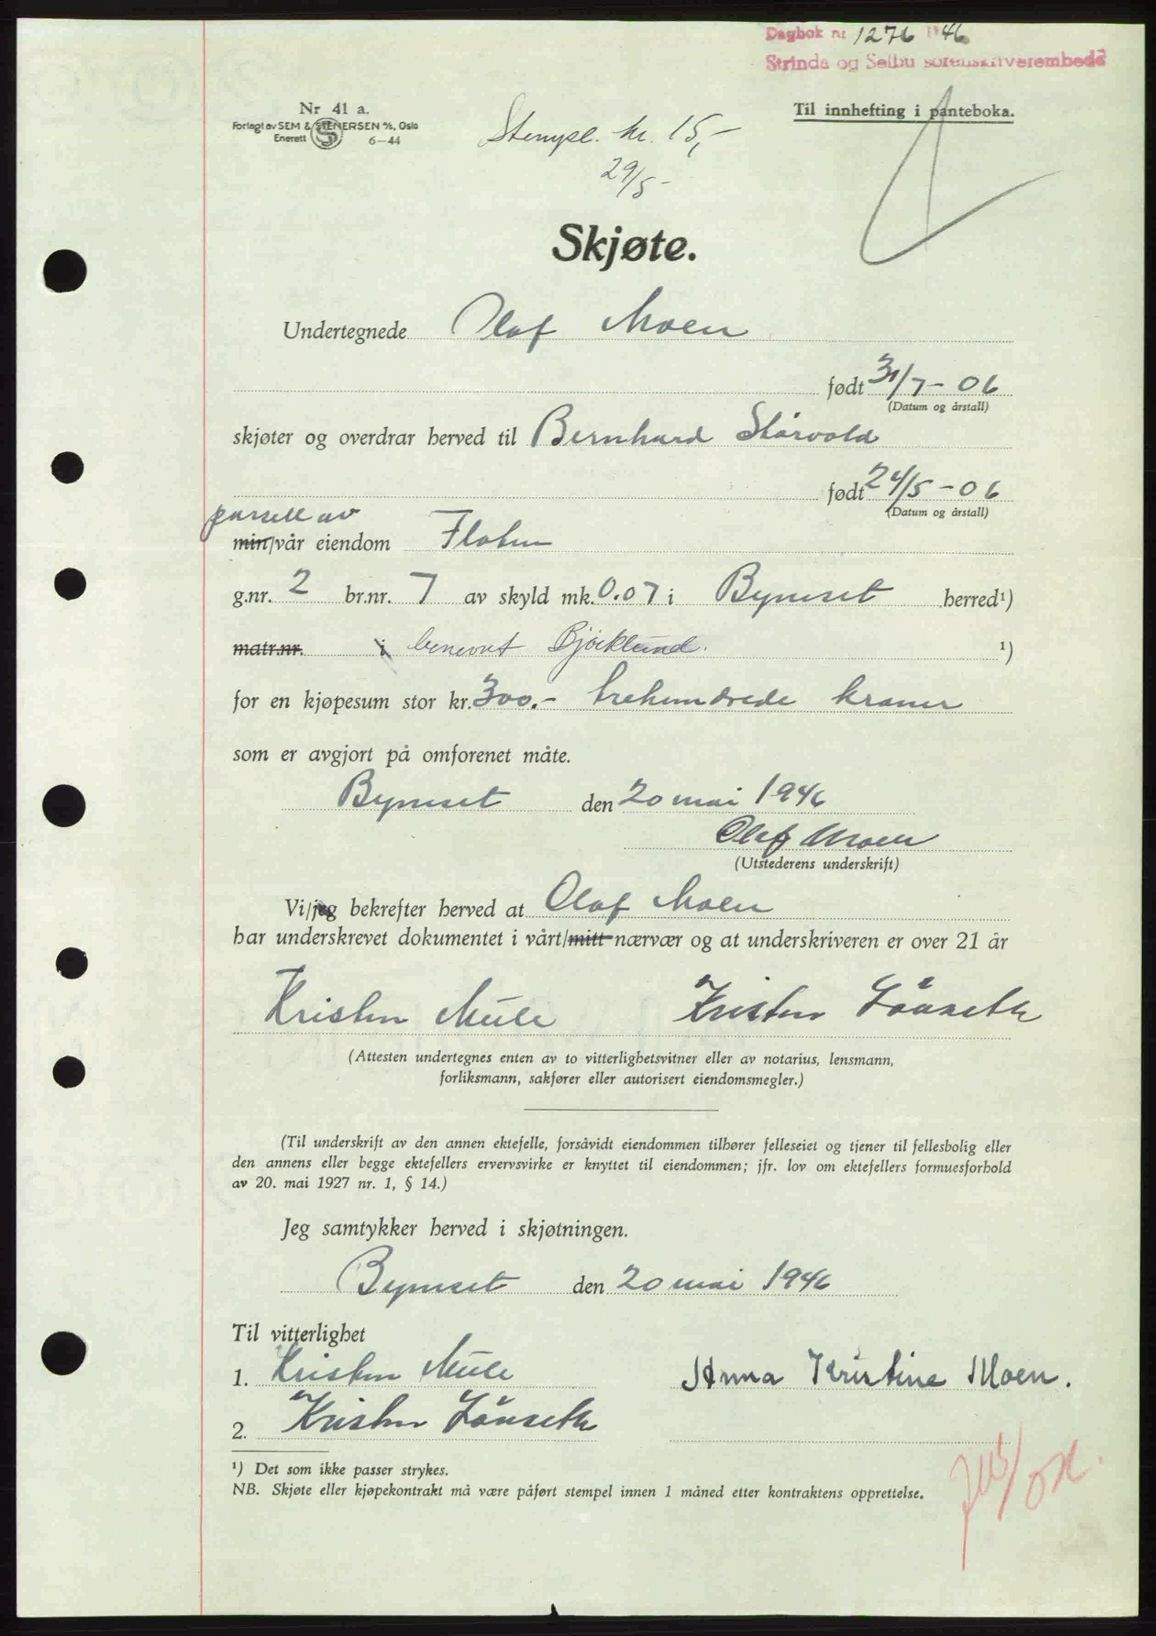 Dagbok nr 1276 1946
Strinda og Selbu sorenskriverembede
Nr 41 a.
Forlagt av SEM & STENERSEN A/S, Oslo
Enerett 6-44
Til innhefting i panteboka.
Stempl. kr. 15,-
29/5-
Skjøte.
Undertegnede Olaf Moen
født 31/7-06
(Datum og årstall)
skjøter og overdrar herved til Bernhard Stårvold
født 24/5-06
(Datum og årstall)
parsell av
min/vår eiendom Floten
g.nr. 2 br.nr. 7 av skyld mk. 0.07 i Byneset herred¹)
matr.nr. i benevnt Bjørklund. ¹)
for en kjøpesum stor kr. 300.- trehundrede kroner
som er avgjort på omforenet måte.
Byneset den 20 mai 1946
Olaf Moen
(Utstederens underskrift)
Vi/jeg bekrefter herved at Olaf Moen
har underskrevet dokumentet i vårt/mitt nærvær og at underskriveren er over 21 år
Kristen Mule Kristen Lånseth
(Attesten undertegnes enten av to vitterlighetsvitner eller av notarius, lensmann,
forliksmann, sakfører eller autorisert eiendomsmegler.)
(Til underskrift av den annen ektefelle, forsåvidt eiendommen tilhører felleseiet og tjener til fellesbolig eller
den annens eller begge ektefellers ervervsvirke er knyttet til eiendommen; jfr. lov om ektefellers formuesforhold
av 20. mai 1927 nr. 1, § 14.)
Jeg samtykker herved i skjøtningen.
Byneset den 20 mai 1946
Til vitterlighet
1. Kristen Mule Anna Kristine Moen.
2. Kristen Lånseth
¹) Det som ikke passer strykes.
NB. Skjøte eller kjøpekontrakt må være påført stempel innen 1 måned etter kontraktens opprettelse.